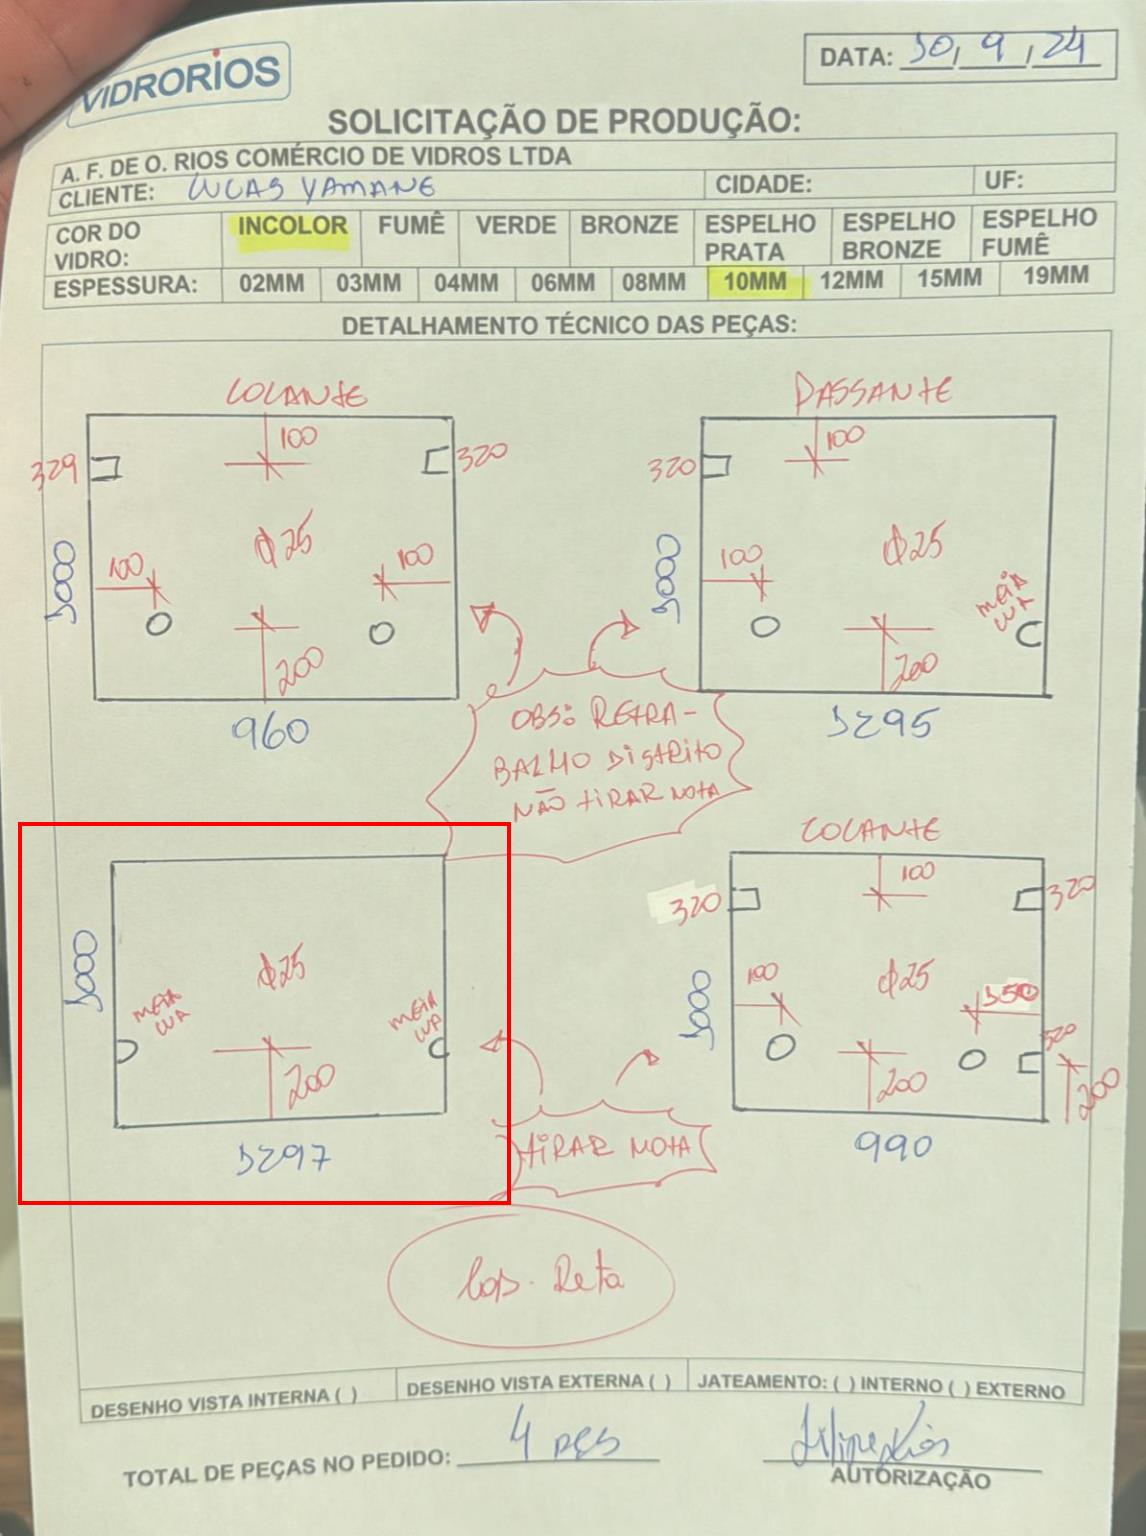 VIDRORIOS
DATA: 30/9/24
SOLICITAÇÃO DE PRODUÇÃO:
A. F. DE O. RIOS COMÉRCIO DE VIDROS LTDA
CLIENTE: LUCAS YAMANE CIDADE: UF:
COR DO VIDRO: INCOLOR FUMÊ VERDE BRONZE ESPELHO PRATA ESPELHO BRONZE ESPELHO FUMÊ
ESPESSURA: 02MM 03MM 04MM 06MM 08MM 10MM 12MM 15MM 19MM
DETALHAMENTO TÉCNICO DAS PEÇAS:
COLANTE
100
329
320
3000
Φ25
100
100
200
960
PASSANTE
100
320
3000
Φ25
100
MEIA
LUA
200
3295
OBS: RETRA-
BALHO DISTRITO
NÃO TIRAR NOTA
3000
Φ25
MEIA
LUA
MEIA
LUA
200
3297
COLANTE
100
320
320
3000
Φ25
100
350
320
200
200
990
TIRAR NOTA
Lap. Reta
DESENHO VISTA INTERNA ( ) DESENHO VISTA EXTERNA ( ) JATEAMENTO: ( ) INTERNO ( ) EXTERNO
TOTAL DE PEÇAS NO PEDIDO: 4 PÇS
AUTORIZAÇÃO